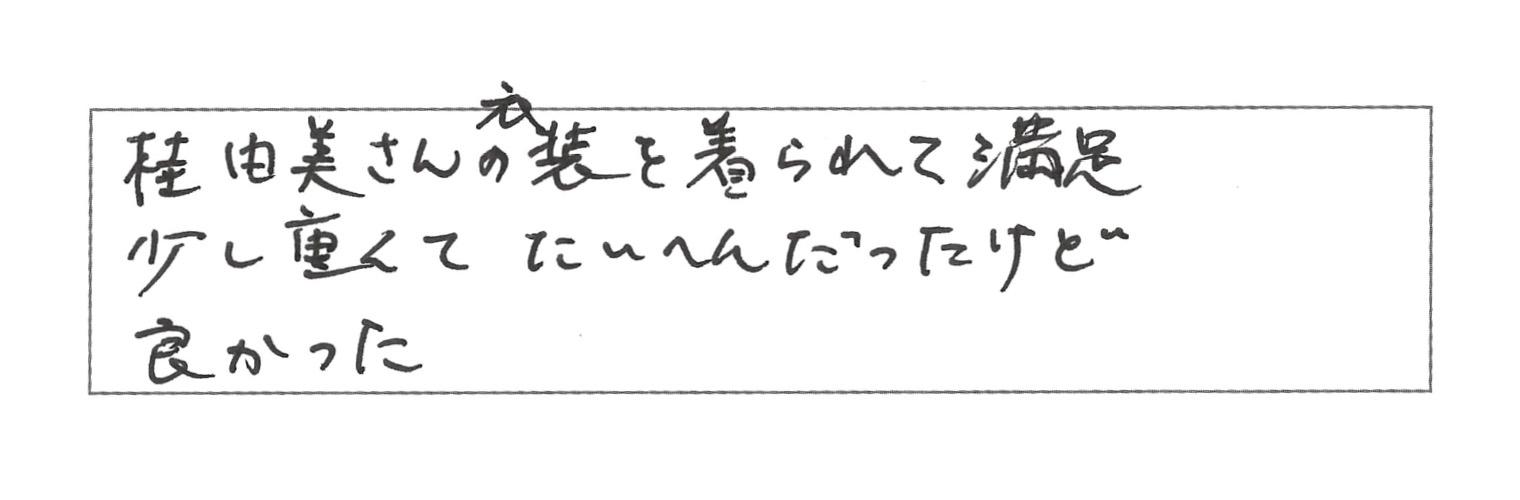 桂由美さんの衣装を着られて満足
少し重くて たいへんだったけど
良かった